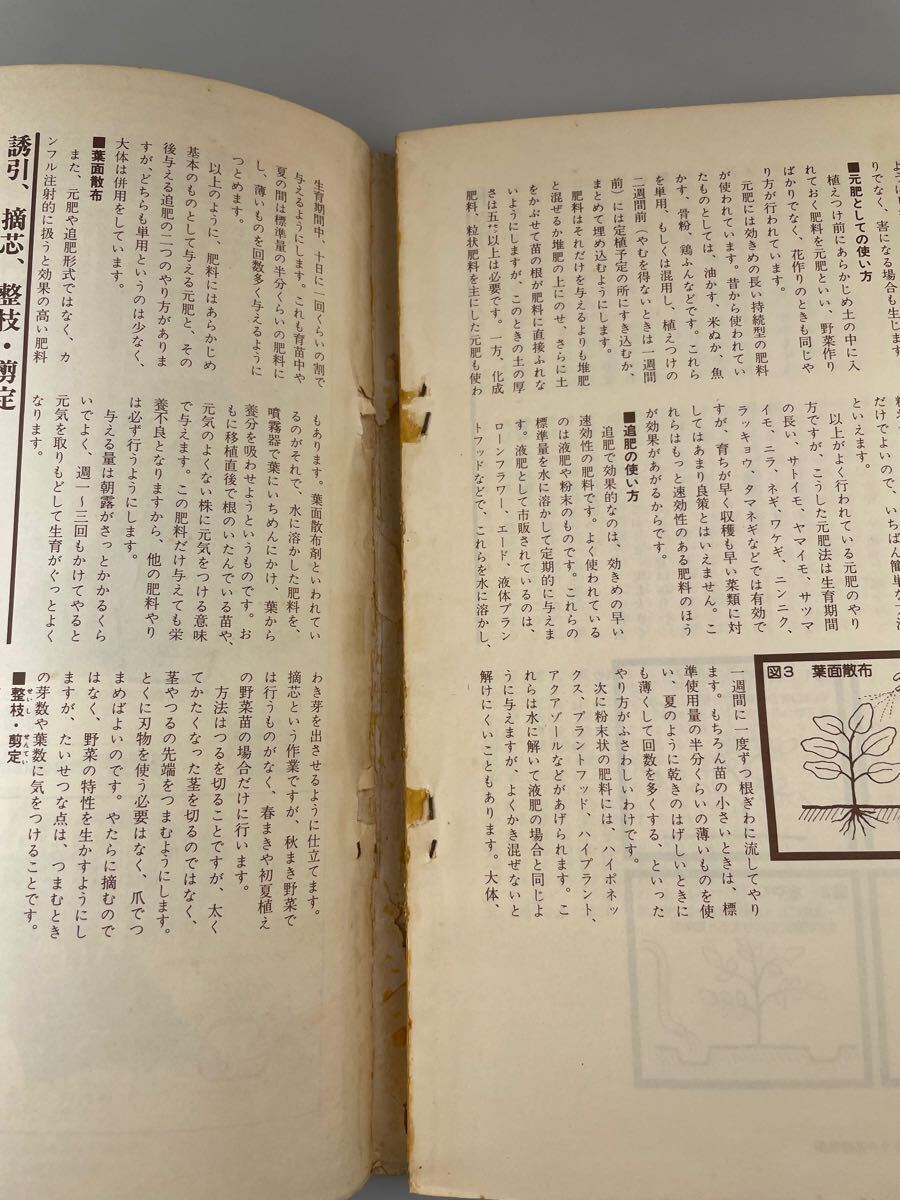 りでなく、害になる場合も生じます
■元肥としての使い方
植えつけ前にあらかじめ土の中に入
れておく肥料を元肥といい、野菜作り
ばかりでなく、花作りのときも同じや
り方が行われています。
元肥には効きめの長い持続型の肥料
が使われています。昔から使われてい
たものとしては、油かす、米ぬか、魚
かす、骨粉、鶏ふんなどです。これら
を単用、もしくは混用し、植えつけの
二週間前（やむを得ないときは一週間
前）には定植予定の所にすき込むか、
まとめて埋め込むようにします。
肥料はそれだけを与えるよりも堆肥
と混ぜるか堆肥の上にのせ、さらに土
をかぶせて苗の根が肥料に直接ふれな
いようにしますが、このときの土の厚
さは五㌢以上は必要です。一方、化成
肥料、粒状肥料を主にした元肥も使わ
だけでよいので、いちばん簡単な
といえます。
以上がよく行われている元肥のやり
方ですが、こうした元肥法は生育期間
の長い、サトイモ、ヤマイモ、サツマ
イモ、ニラ、ネギ、ワケギ、ニンニク、
ラッキョウ、タマネギなどでは有効で
すが、育ちが早く収穫も早い菜類に対
してはあまり良策とはいえません。こ
れらはもっと速効性のある肥料のほう
が効果があがるからです。
■追肥の使い方
追肥で効果的なのは、効きめの早い
速効性の肥料です。よく使われている
のは液肥や粉末のものです。これらの
標準量を水に溶かして定期的に与えま
す。液肥として市販されているのは、
ローンフラワー、エード、液体プラン
トフッドなどで、これらを水に溶かし、
図3 葉面散布
一週間に一度ずつ根ぎわに流してやり
ます。もちろん苗の小さいときは、標
準使用量の半分くらいの薄いものを使
い、夏のように乾きのはげしいときに
も薄くして回数を多くする、といった
やり方がふさわしいわけです。
次に粉末状の肥料には、ハイポネッ
クス、プラントフッド、ハイプラント、
アクアゾールなどがあげられます。こ
れらは水に解いて液肥の場合と同じよ
うに与えますが、よくかき混ぜないと
解けにくいこともあります。大体、
生育期間中、十日に一回くらいの割で
与えるようにします。これも育苗中や
夏の間は標準量の半分くらいの肥料に
し、薄いものを回数多く与えるように
つとめます。
以上のように、肥料にはあらかじめ
基本のものとして与える元肥と、その
後与える追肥の二つのやり方がありま
すが、どちらも単用というのは少なく、
大体は併用をしています。
■葉面散布
また、元肥や追肥形式ではなく、カ
ンフル注射的に扱うと効果の高い肥料
もあります。葉面散布剤といわれてい
るのがそれで、水に溶かした肥料を、
噴霧器で葉にいちめんにかけ、葉から
養分を吸わせようというものです。お
もに移植直後で根のいたんでいる苗や、
元気のよくない株に元気をつける意味
で与えます。この肥料だけ与えても栄
養不良となりますから、他の肥料やり
は必ず行うようにします。
与える量は朝露がさっとかかるくら
いでよく、週一～三回もかけてやると
元気を取りもどして生育がぐっとよく
なります。
誘引、摘芯、整枝・剪定
わき芽を出させるように仕立てます。
摘芯という作業ですが、秋まき野菜で
は行うものがなく、春まきや初夏植え
の野菜苗の場合だけに行います。
方法はつるを切ることですが、太く
てかたくなった茎を切るのではなく、
茎やつるの先端をつまむようにします。
とくに刃物を使う必要はなく、爪でつ
まめばよいのです。やたらに摘むので
はなく、野菜の特性を生かすようにし
ますが、たいせつな点は、つまむとき
の芽数や葉数に気をつけることです。
■整枝・剪定